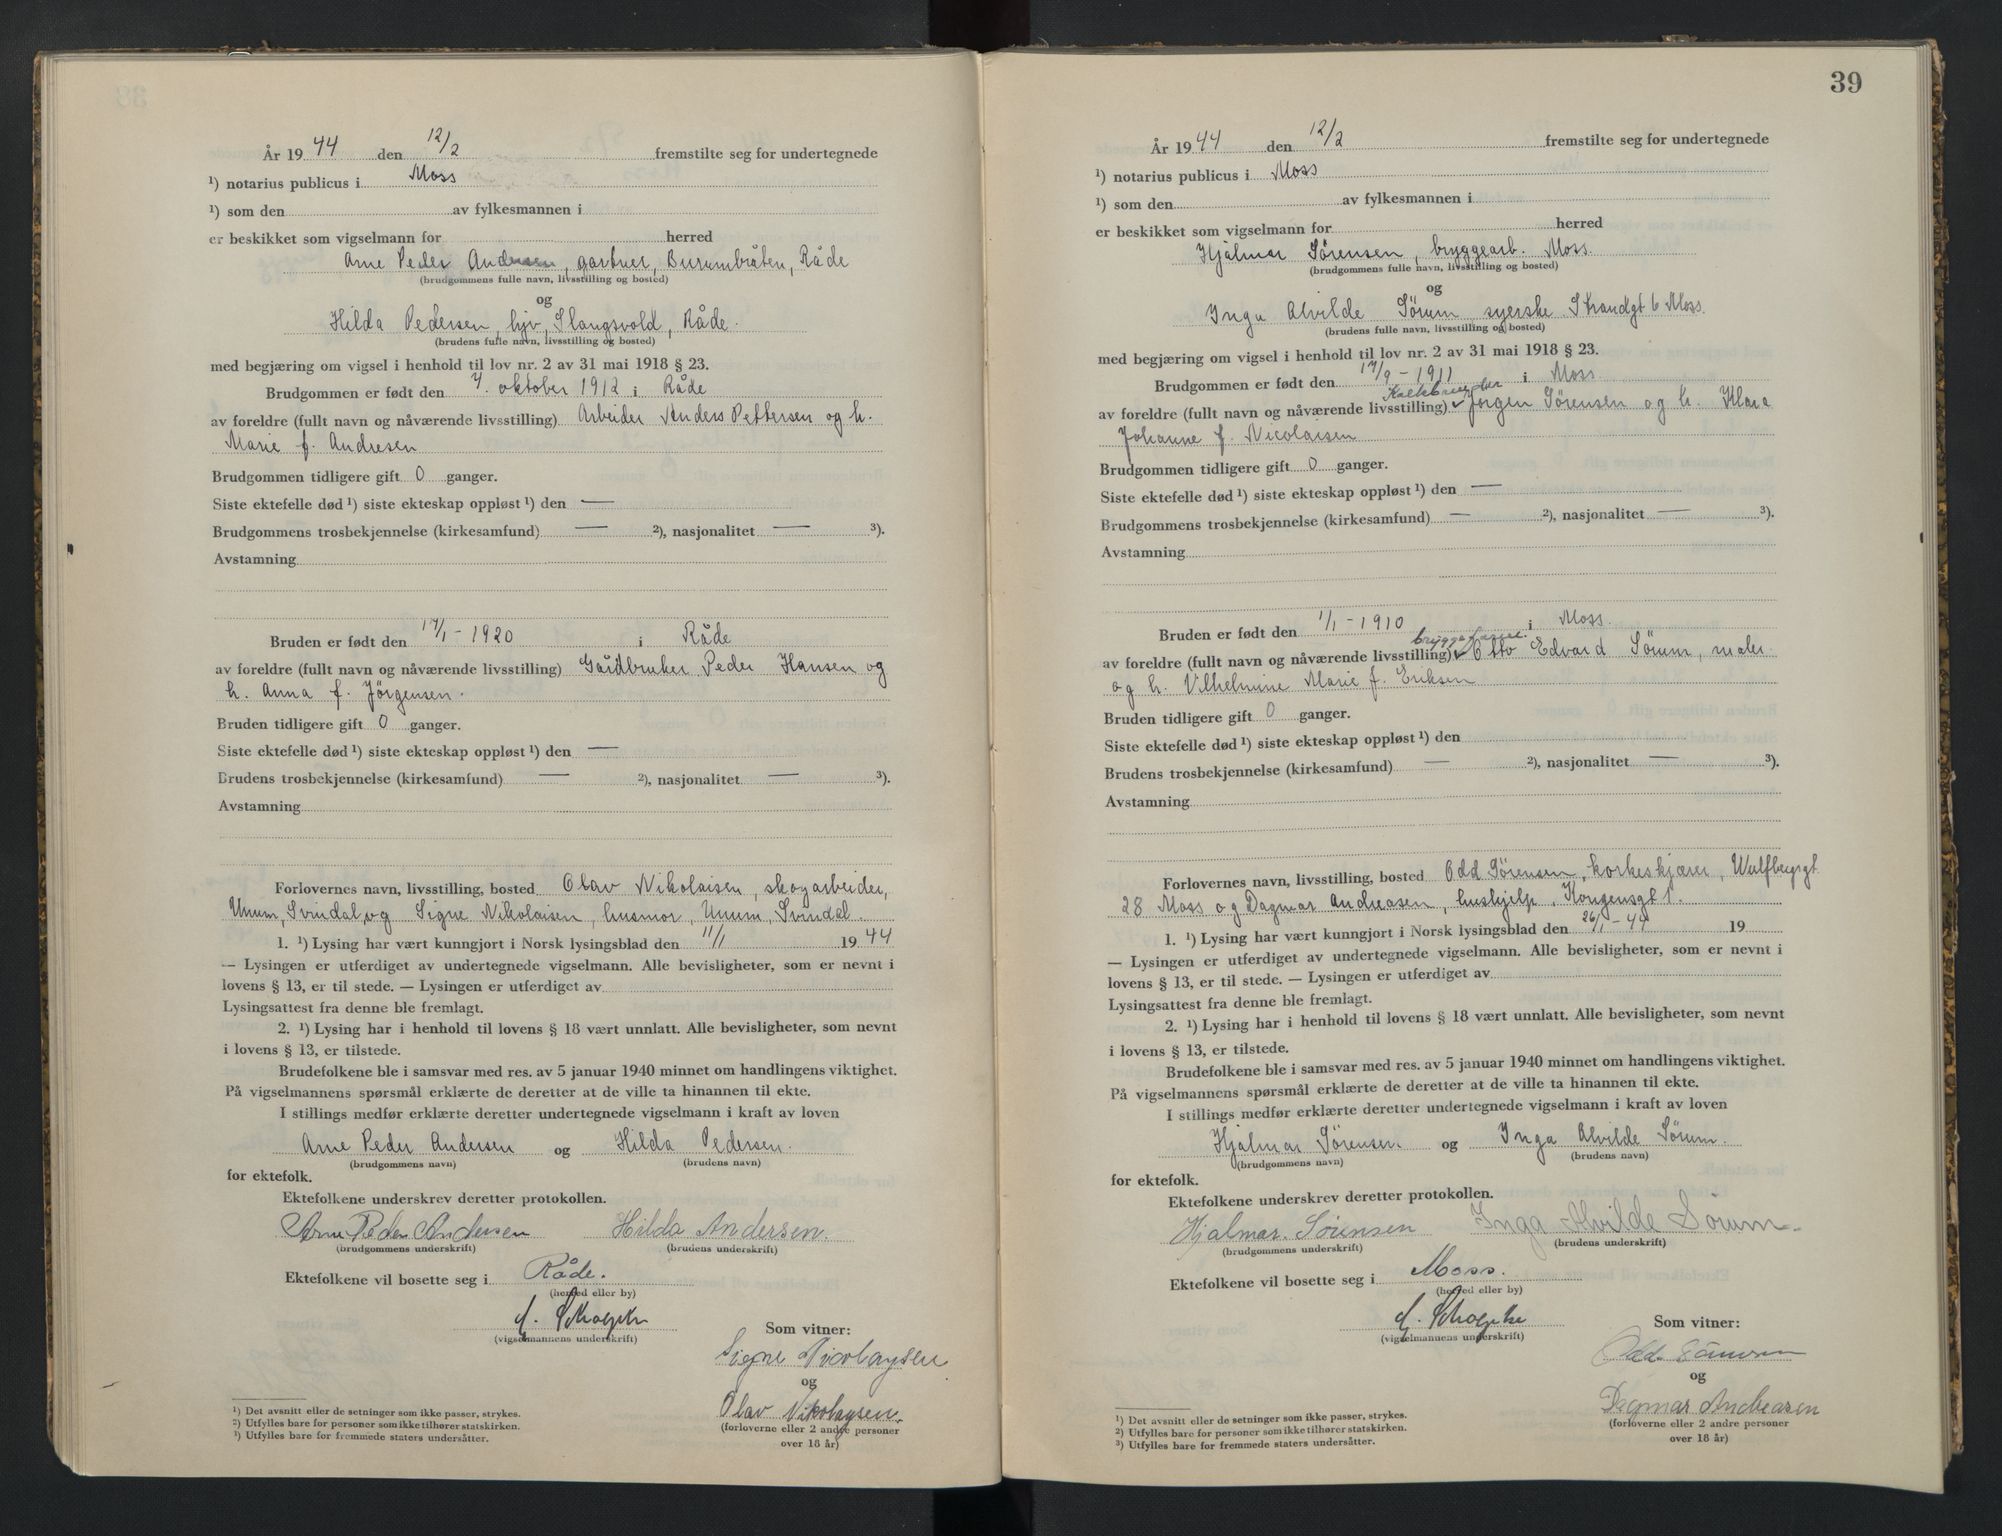 År 1944 den 12/2 fremstilte seg for undertegnede
¹) notarius publicus i Moss
¹) som den av fylkesmannen i
er beskikket som vigselmann for herred
Arne Peder Andersen, gartner, Burumbråten, Råde
(brudgommens fulle navn, livsstilling og bosted)
og
Hilda Pedersen, hjv, Slangsvold, Råde.
(brudens fulle navn, livsstilling og bosted)
med begjæring om vigsel i henhold til lov nr. 2 av 31 mai 1918 § 23.
Brudgommen er født den 7. oktober 1912 i Råde
av foreldre (fullt navn og nåværende livsstilling) Arbeider Anders Pettersen og h.
Marie f. Andresen
Brudgommen tidligere gift 0 ganger.
Siste ektefelle død ¹) siste ekteskap oppløst ¹) den —
Brudgommens trosbekjennelse (kirkesamfund) — ²), nasjonalitet — ³).
Avstamning
Bruden er født den 17/1 - 1920 i Råde
av foreldre (fullt navn og nåværende livsstilling) Gårdbruker Peder Hansen og
h. Anna f. Jørgensen.
Bruden tidligere gift 0 ganger.
Siste ektefelle død ¹) siste ekteskap oppløst ¹) den —
Brudens trosbekjennelse (kirkesamfund) — ²), nasjonalitet — ³).
Avstamning
Forlovernes navn, livsstilling, bosted Olav Nikolaisen, skogarbeider,
Unum, Svindal og Signe Nikolaisen, husmor, Unum, Svindal.
1. ¹) Lysing har vært kunngjort i Norsk lysingsblad den 11/1 1944
— Lysingen er utferdiget av undertegnede vigselmann. Alle bevisligheter, som er nevnt i
lovens § 13, er til stede. — Lysingen er utferdiget av
Lysingsattest fra denne ble fremlagt.
2. ¹) Lysing har i henhold til lovens § 18 vært unnlatt. Alle bevisligheter, som nevnt
i lovens § 13, er tilstede.
Brudefolkene ble i samsvar med res. av 5 januar 1940 minnet om handlingens viktighet.
På vigselmannens spørsmål erklærte de deretter at de ville ta hinannen til ekte.
I stillings medfør erklærte deretter undertegnede vigselmann i kraft av loven
Arne Peder Andersen og Hilda Pedersen.
(brudgommens navn) (brudens navn)
for ektefolk.
Ektefolkene underskrev deretter protokollen.
Arne Peder Andersen Hilda Andersen.
(brudgommens underskrift) (brudens underskrift)
Ektefolkene vil bosette seg i Råde.
(herred eller by)
(vigselmannens underskrift)
Som vitner:
Signe Nicolaysen
og
Olav Nikolaysen.
(forloverne eller 2 andre personer
over 18 år)
¹) Det avsnitt eller de setninger som ikke passer, strykes.
²) Utfylles bare for personer som ikke tilhører statskirken.
³) Utfylles bare for fremmede staters undersåtter.
39
År 1944 den 12/2 fremstilte seg for undertegnede
¹) notarius publicus i Moss
¹) som den av fylkesmannen i
er beskikket som vigselmann for herred
Hjalmar Sørensen, bryggearb. Moss.
(brudgommens fulle navn, livsstilling og bosted)
og
Inga Alvilde Sørum syerske Strandgt 6 Moss.
(brudens fulle navn, livsstilling og bosted)
med begjæring om vigsel i henhold til lov nr. 2 av 31 mai 1918 § 23.
Brudgommen er født den 17/9 - 1911 i Moss.
av foreldre (fullt navn og nåværende livsstilling) Jørgen Sørensen og h. Klara
Johanne f. Nicolaisen
Brudgommen tidligere gift 0 ganger.
Siste ektefelle død ¹) siste ekteskap oppløst ¹) den —
Brudgommens trosbekjennelse (kirkesamfund) — ²), nasjonalitet — ³).
Avstamning
Bruden er født den 1/1 - 1910 i Moss.
av foreldre (fullt navn og nåværende livsstilling) Otto Edvard Sørum, maler
og h. Vilhelmine Marie f. Eriksen
Bruden tidligere gift 0 ganger.
Siste ektefelle død ¹) siste ekteskap oppløst ¹) den
Brudens trosbekjennelse (kirkesamfund) — ²), nasjonalitet — ³).
Avstamning
Forlovernes navn, livsstilling, bosted Odd Sørensen, korkeskjærer, Wulfbergsgt.
28 Moss og Dagmar Andreasen, hushjelp, Kongensgt 1.
1. ¹) Lysing har vært kunngjort i Norsk lysingsblad den 26/1 - 44 19
— Lysingen er utferdiget av undertegnede vigselmann. Alle bevisligheter, som er nevnt i
lovens § 13, er til stede. — Lysingen er utferdiget av
Lysingsattest fra denne ble fremlagt.
2. ¹) Lysing har i henhold til lovens § 18 vært unnlatt. Alle bevisligheter, som nevnt
i lovens § 13, er tilstede.
Brudefolkene ble i samsvar med res. av 5 januar 1940 minnet om handlingens viktighet.
På vigselmannens spørsmål erklærte de deretter at de ville ta hinannen til ekte.
I stillings medfør erklærte deretter undertegnede vigselmann i kraft av loven
Hjalmar Sørensen. og Inga Alvilde Sørum.
(brudgommens navn) (brudens navn)
for ektefolk.
Ektefolkene underskrev deretter protokollen.
Hjalmar. Sørensen Inga Alvilde Sørum.
(brudgommens underskrift) (brudens underskrift)
Ektefolkene vil bosette seg i Moss.
(herred eller by)
(vigselmannens underskrift)
Som vitner:
Odd Sørensen
og
Dagmar Andreasen
(forloverne eller 2 andre personer
over 18 år)
¹) Det avsnitt eller de setninger som ikke passer, strykes.
²) Utfylles bare for personer som ikke tilhører statskirken.
³) Utfylles bare for fremmede staters undersåtter.